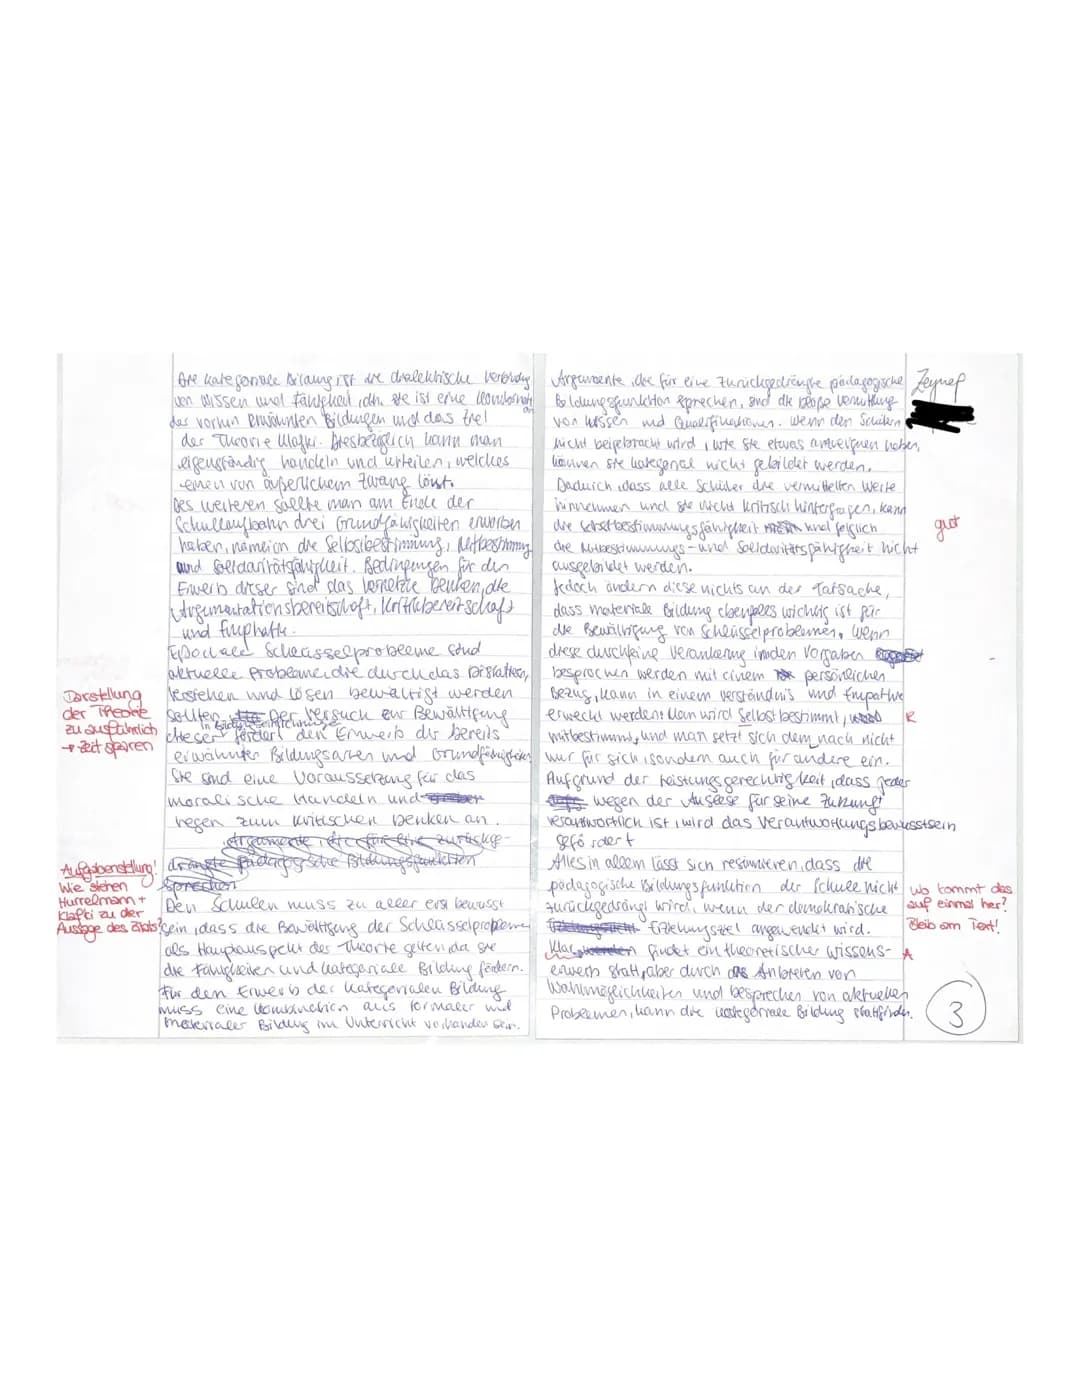 Die kategoriale Bildung ist die dialektische Verbindung
von Wissen und Fähigkeit, den sie ist eine Kombination
der vorhin erwähnten Bildungen und das Ziel
der Theorie Klafki. Diesbezüglich kann man
eigenständig handeln und urteilen, welches
einen von äußerlichem Zwang löst.
Des weiteren sollte man am Ende der
Schullaufbahn drei Grundfähigkeiten erworben
haben, nämlich die Selbstbestimmung, Mitbestimmung
und Solidaritätsfähigkeit. Bedingungen für den
Erwerb dieser sind das vernetzte Denken, die
Argumentationsbereitschaft, Kritikbereitschaft
und Emphatie.
Epochale Schlüsselprobleme sind
aktuelle Probleme, die durch das
Verstehen und Lösen bewältigt werden
sollten. Der Versuch zur Bewältigung
in Bildungseinrichtungen
dieser fördert den Erwerb der bereits
erwähnter Bildungsarten und Grundfähigkeiten.
Sie sind eine Voraussetzung für das
moralische Handeln und
regen zum kritischen Denken an.
Argumente, die für eine zurückge-
drängte pädagogische Bildungsfunktion
sprechen
Den Schulen muss zu aller erst bewusst
sein, dass die Bewältigung der Schlüsselprobleme
als Hauptaspekt der Theorie gelten, da sie
die Fähigkeiten und kategoriale Bildung fördern.
Für den Erwerb der kategorialen Bildung
muss eine Kombination aus formaler und
materialer Bildung im Unterricht vorhanden sein.
Darstellung
der Theorie
zu ausführlich
→ Zeit sparen
Aufgabenstellung!
Wie stehen
Hurrelmann +
Klafki zu der
Aussage des Zitats?
Zeynep
Argumente, die für eine zurückgedrängte pädagogische
Bildungsfunktion sprechen, sind die bloße Vermittlung
von Wissen und Qualifikationen. Wenn den Schülern
nicht beigebracht wird, wie sie etwas anzueignen haben,
können sie kategorial nicht gebildet werden.
Dadurch, dass alle Schüler die vermittelten Werte
hinnehmen und sie nicht kritisch hinterfragen, kann
die Selbstbestimmungsfähigkeit und folglich
die Mitbestimmungs- und Solidaritätsfähigkeit nicht
ausgebildet werden.
Jedoch ändern diese nichts an der Tatsache,
dass materiale Bildung ebenfalls wichtig ist für
die Bewältigung von Schlüsselproblemen. Wenn
diese durch eine Verankerung in den Vorgaben
besprochen werden mit einem persönlichen
Bezug, kann in einem Verständnis und Empathie
erweckt werden. Man wird Selbst bestimmt,
mitbestimmt, und man setzt sich dem nach nicht
nur für sich, sondern auch für andere ein.
Aufgrund der Leistungsgerechtigkeit, dass jeder
wegen der Auslese für seine Zukunft
verantwortlich ist, wird das Verantwortungsbewusstsein
gefördert
Alles in allem lässt sich resümieren, dass die
pädagogische Bildungsfunktion der Schule nicht
zurückgedrängt wird, wenn der demokratische
Erziehungsstil angewendt wird.
Klar findet ein theoretischer Wissens-
erwerb statt, aber durch das Anbieten von
Wahlmöglichkeiten und besprechen von aktuellen
Problemen, kann die kategoriale Bildung stattfinden.
gut
R
wo kommt das
auf einmal her?
Bleib am Text!
A
3